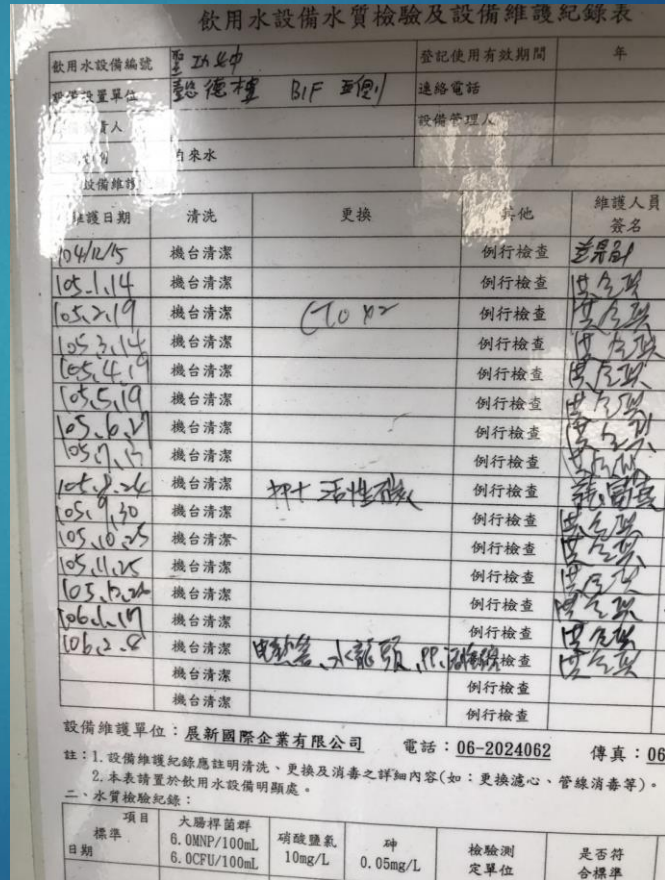 飲用水設備水質檢驗及設備維護紀錄表
飲用水設備編號 聖功女中 登記使用有效期間 年
設備設置單位 懿德樓 B1F 連絡電話
責人 設備管理人
自來水
設備維護
維護日期 清洗 更換 其他 維護人員簽名
104/12/15 機台清潔 例行檢查
105.1.14 機台清潔 例行檢查
105.2.19 機台清潔 例行檢查
105.3.14 機台清潔 例行檢查
105.4.19 機台清潔 例行檢查
105.5.19 機台清潔 例行檢查
105.6.27 機台清潔 例行檢查
105.7.17 機台清潔 例行檢查
105.8.24 機台清潔 活性碳 例行檢查
105.9.30 機台清潔 例行檢查
105.10.25 機台清潔 例行檢查
105.11.25 機台清潔 例行檢查
105.12.26 機台清潔 例行檢查
106.1.17 機台清潔 例行檢查
106.2.8 機台清潔 電熱管、水龍頭、PP、 檢查
機台清潔 例行檢查
機台清潔 例行檢查
設備維護單位：展新國際企業有限公司 電話：06-2024062 傳真：06
註：1.設備維護紀錄應註明清洗、更換及消毒之詳細內容(如：更換濾心、管線消毒等)。
2.本表請置於飲用水設備明顯處。
二、水質檢驗紀錄：
項目 標準 日期 大腸桿菌群 6.0MNP/100mL 6.0CFU/100mL 硝酸鹽氮 10mg/L 砷 0.05mg/L 檢驗測定單位 是否符合標準